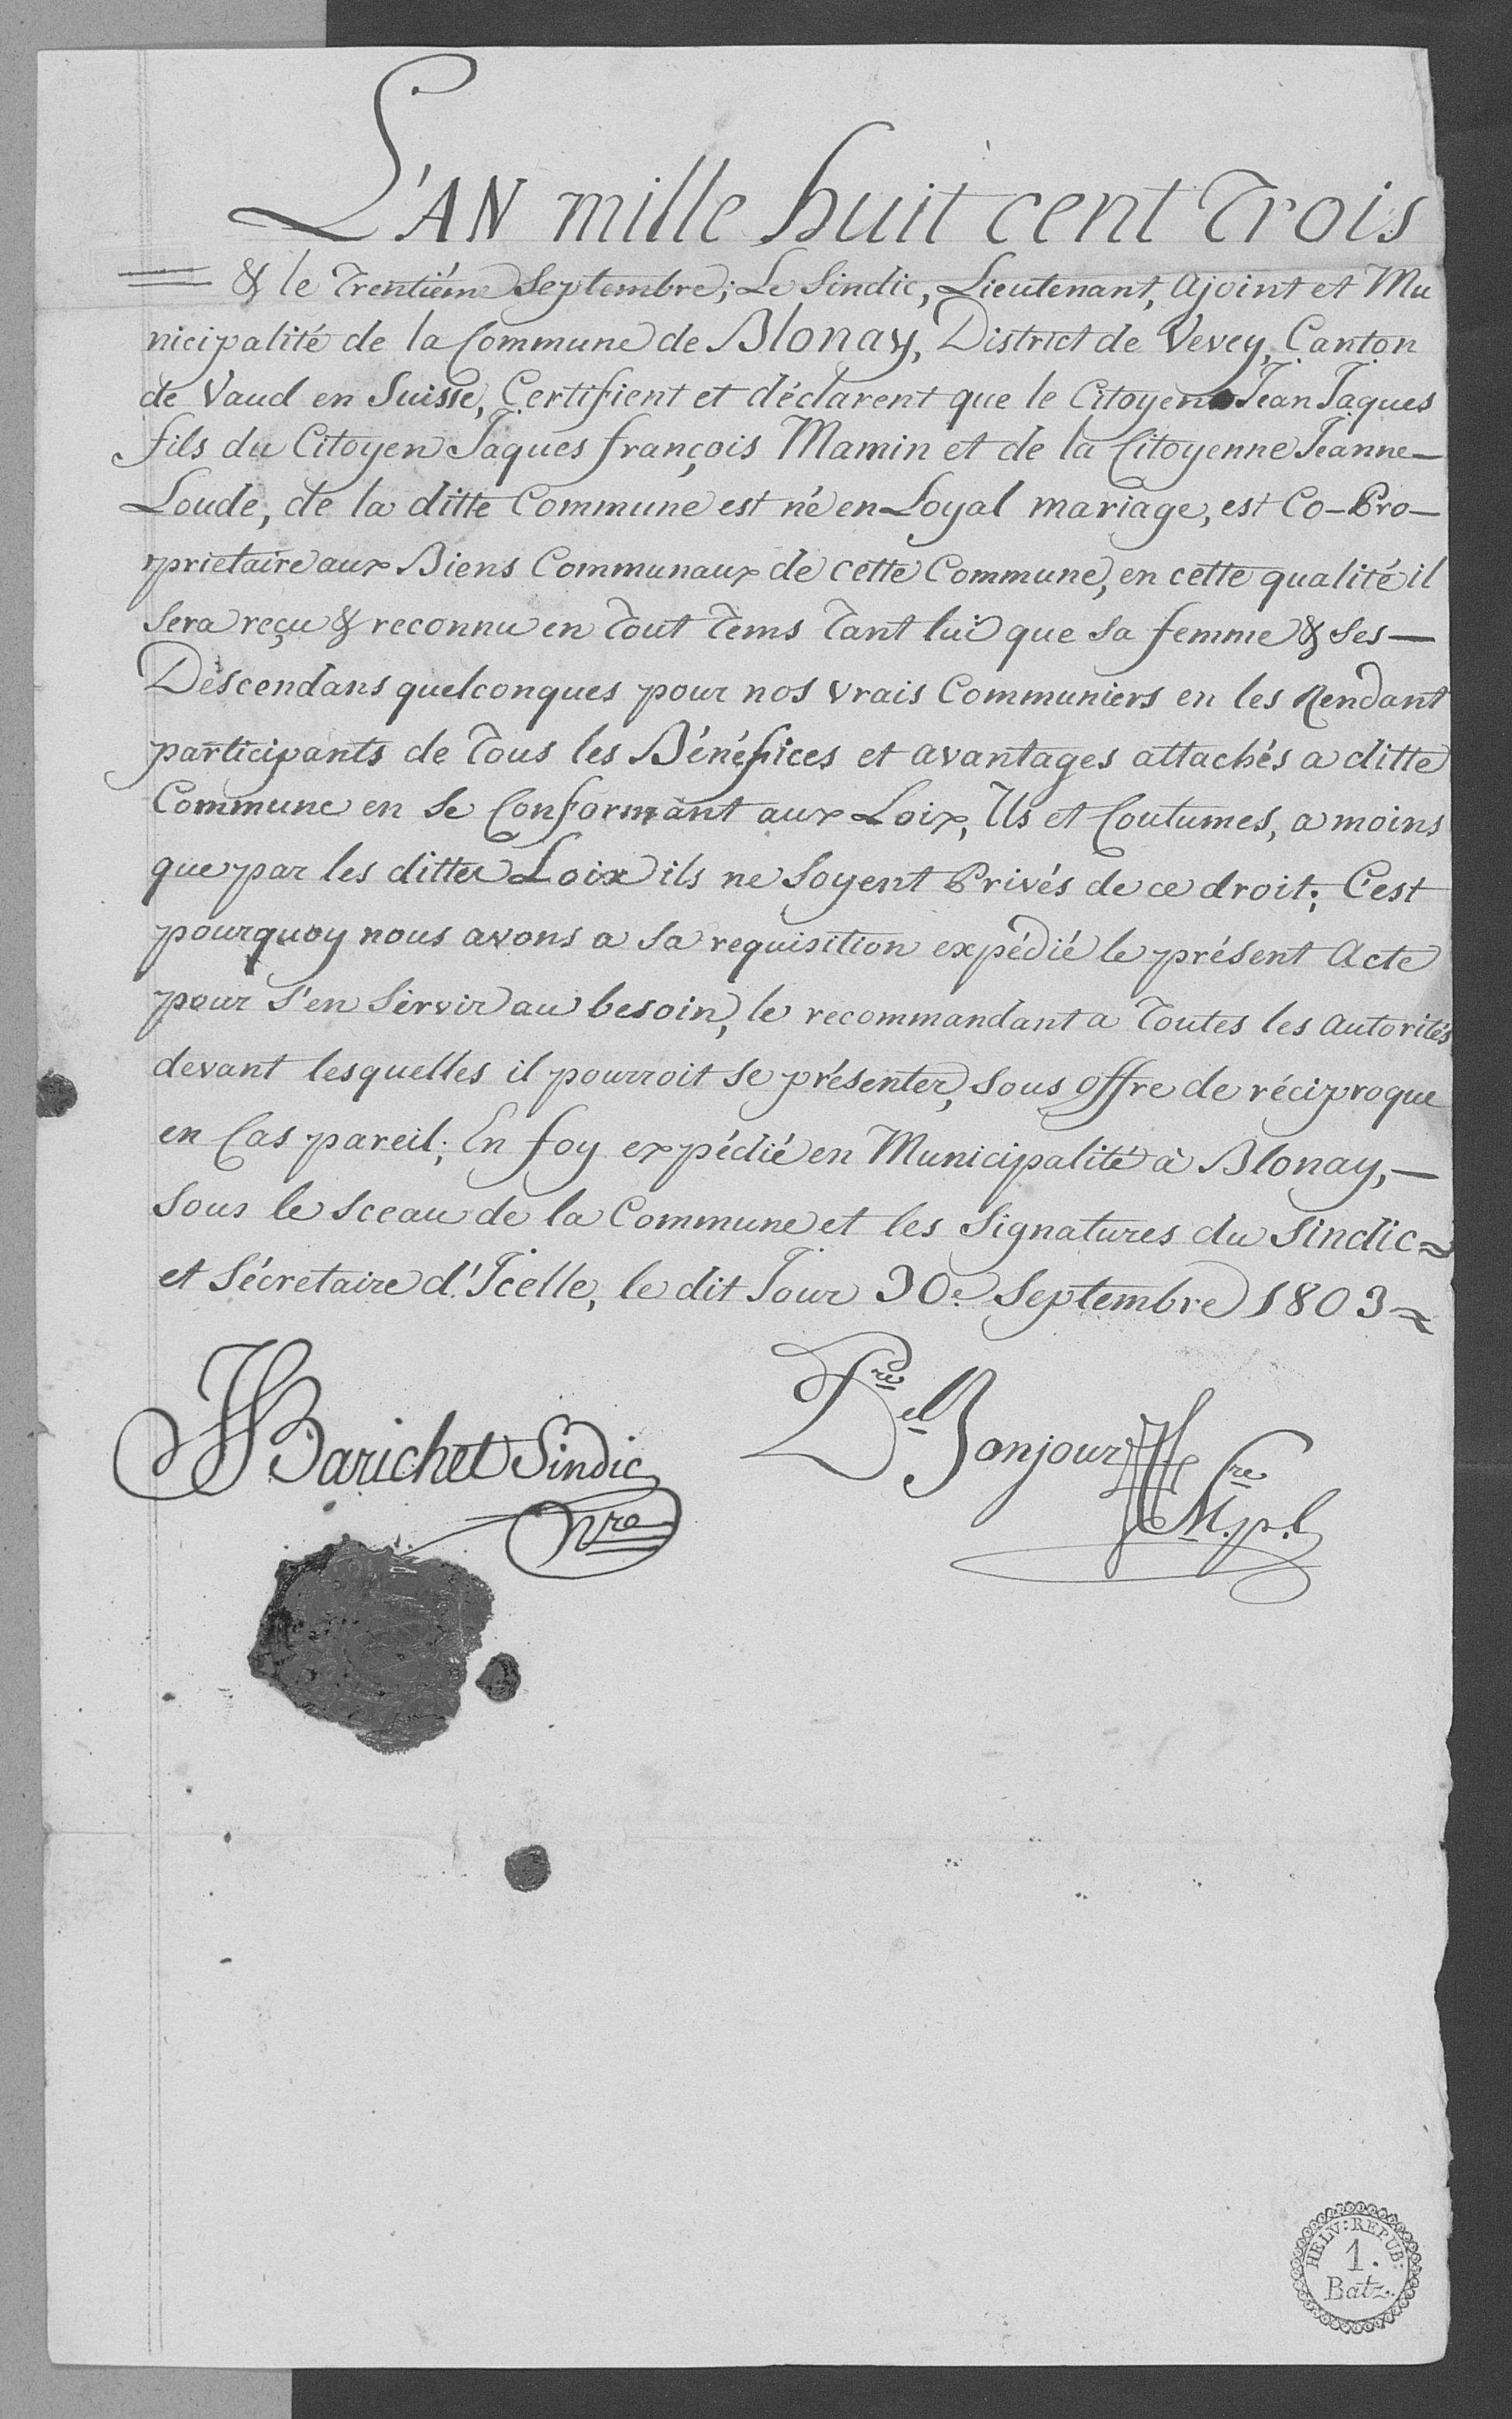 L'AN mille huit cent Trois
& le Trentiém Septembre; Le Sindic, Lieutenant, Ajoint et Mu
nicipalité de la Commune de Blonay, District de Vevey, Canton
de Vaud en Suisse, Certifient et déclarent que le Citoyen Jean Jaques
fils du Citoyen Jaques françois Mamin et de la Citoyenne Jeanne—
Loude, de la ditte Commune est né en Loyal mariage, est Co-Pro—
prietaire aux Biens Communaux de cette Commune, en cette qualité il
Sera reçu & reconnu en Tout Tems Tant lui que sa femme & ses—
Déscendans quelconques pour nos vrais Communiers en les Rendant
participants de Tous les Bénéfices et avantages attachés a ditte
Commune en se Conformant aux Loix, Us et Coutumes, a moins
que par les dittes Loix ils ne Soyent Privés de ce droit; C'est
pourquoy nous avons a sa requisition expédié le présent Acte
pour s'en Servir au besoin, le recommandant a Toutes les Autorités
devant lesquelles il pourroit se présenter, sous offre de réciproque
en Cas pareil; En foy expédié en Municipalité à Blonay,—
Sous le sceau de la Commune et les Signatures du Sindic
et Sécretaire d'Icelle, le dit Jour 30e Septembre 1803
Barichet Sindic
Del Bonjour
Sre
M.p.l
HELV: REPUB:
1.
Batz.